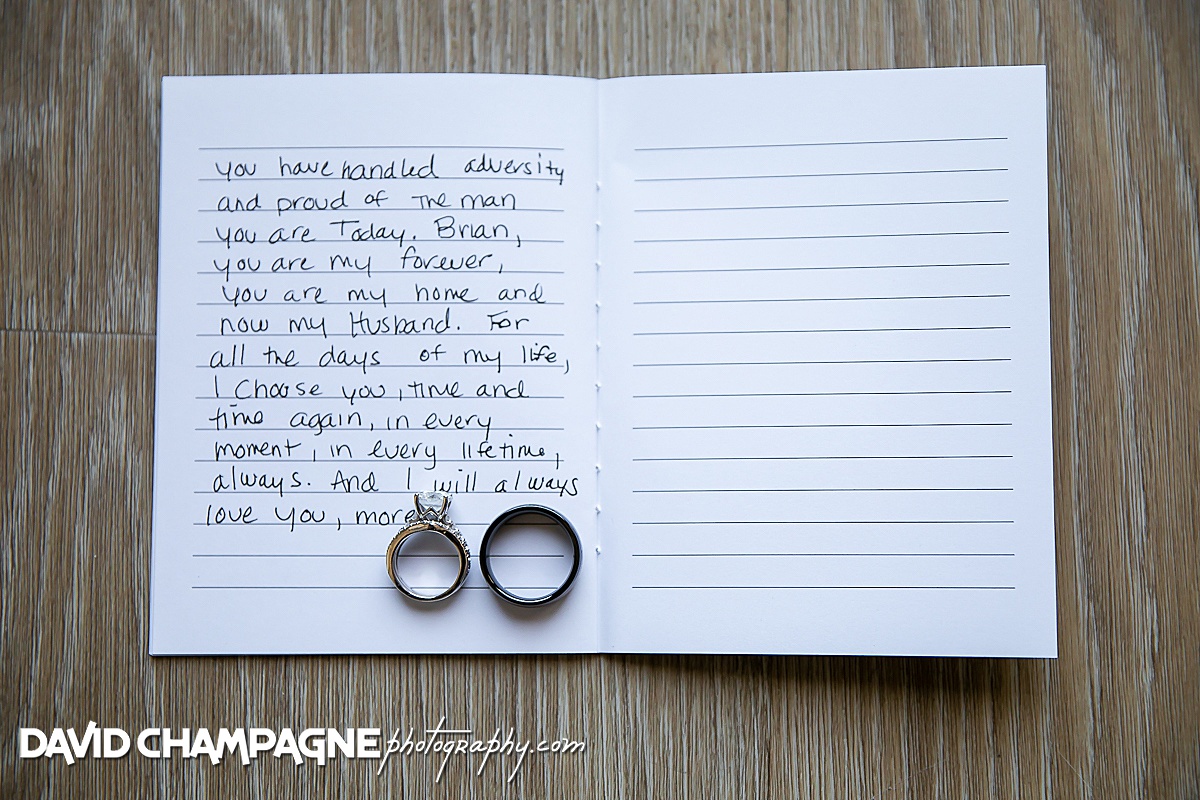 you have handled adversity
and proud of The man
you are Today. Brian,
you are my forever,
you are my home and
now my Husband. For
all the days of my life,
I Choose you, time and
time again, in every
moment, in every lifetime,
always. And I will always
love you, more
DAVID CHAMPAGNE photography.com